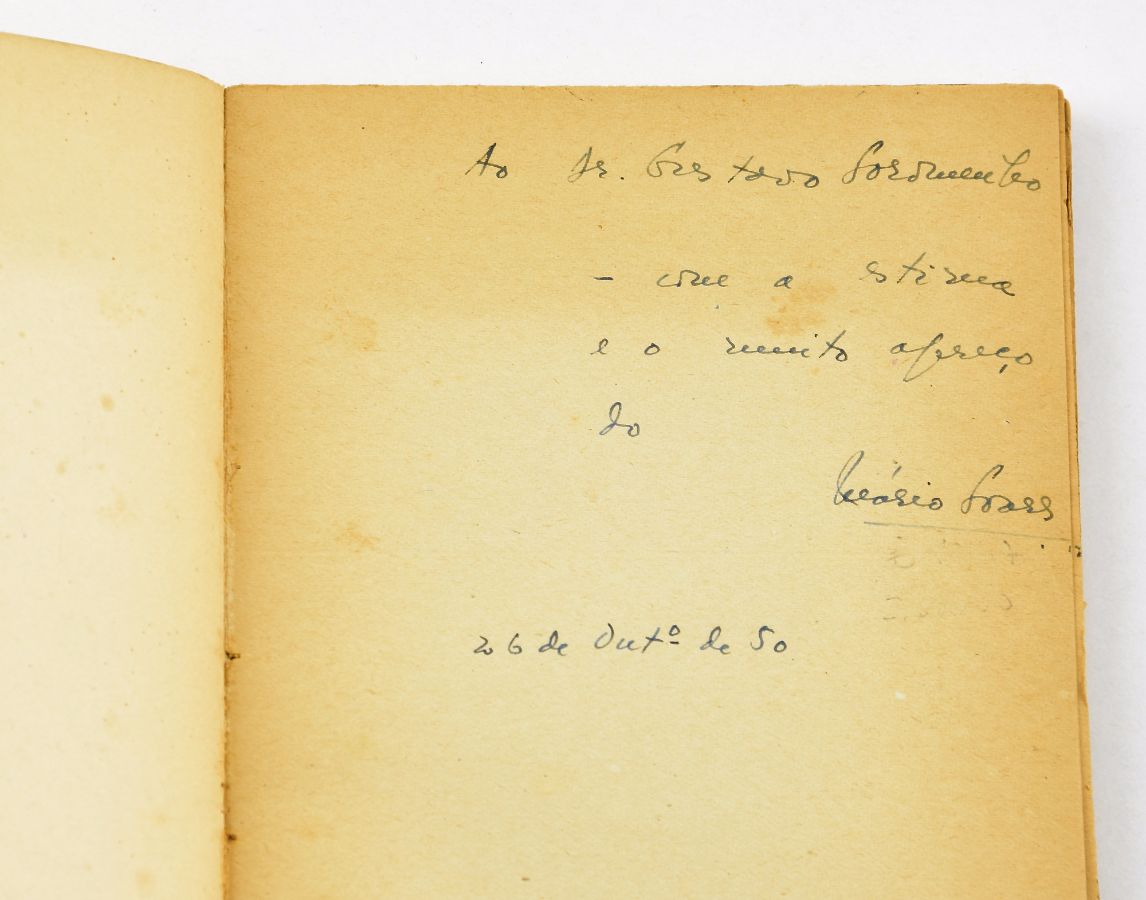 Ao Dr. Gustavo Soromenho
- com a estima
e o muito apreço
do
Mário Soares
26 de Outº de 50